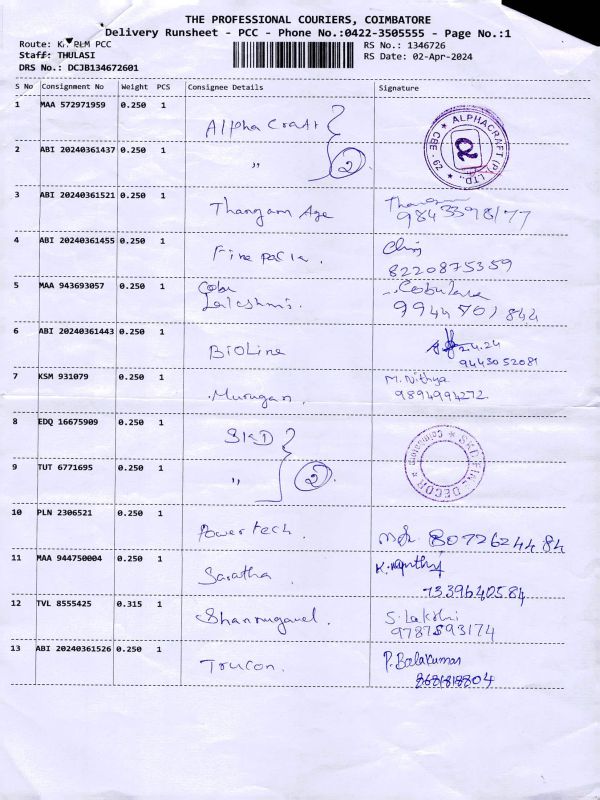 THE PROFESSIONAL COURIERS, COIMBATORE
Delivery Runsheet - PCC - Phone No.:0422-3505555 - Page No.:1
Route: RLM PCC
RS No.: 1346726
Staff: THULASI
RS Date: 02-Apr-2024
DRS No.: DCJB134672601
S No Consignment No Weight PCS Consignee Details Signature
1 MAA 572971959 0.250 1 Alpha Craft
ALPHACRAFT (P) LTD., ★ CBE - 62 ★
2 ABI 20240361437 0.250 1 " 2
3 ABI 20240361521 0.250 1 Thangam Age
9843398177
4 ABI 20240361455 0.250 1
8220875359
5 MAA 943693057 0.250 1 Lalcshmi.
9944701844
6 ABI 20240361443 0.250 1 BiOLine 2.4.24
9443052081
7 KSM 931079 0.250 1 Murugan. M. Nithya
9894994272
8 EDQ 16675909 0.250 1 SKD
9 TUT 6771695 0.250 1 " 2
10 PLN 2306521 0.250 1 Powertech. 8072624484
11 MAA 944750004 0.250 1 Saratha
7339640584
12 TVL 8555425 0.315 1 Shanmugavel.
9787593174
13 ABI 20240361526 0.250 1 Trucon. P. Balakumar